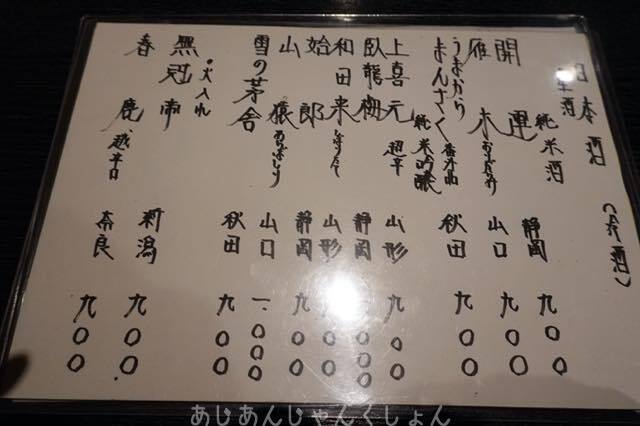 日本酒 (冷酒)
・生酒
開運 純米酒 静岡 九〇〇
雁木 おりがらみ 山口 九〇〇
うまからまんさく 番外品 秋田 九〇〇
上喜元 純米吟醸 超辛 山形 九〇〇
臥龍梅 静岡
和田来 山形
始郎 静岡 九〇〇
山猿 山口 一、〇〇〇
雪の茅舎 秋田 九〇〇
・火入れ
無冠帝 新潟 九〇〇
春鹿 超辛口 奈良 九〇〇
あじあんじゃんくしょん